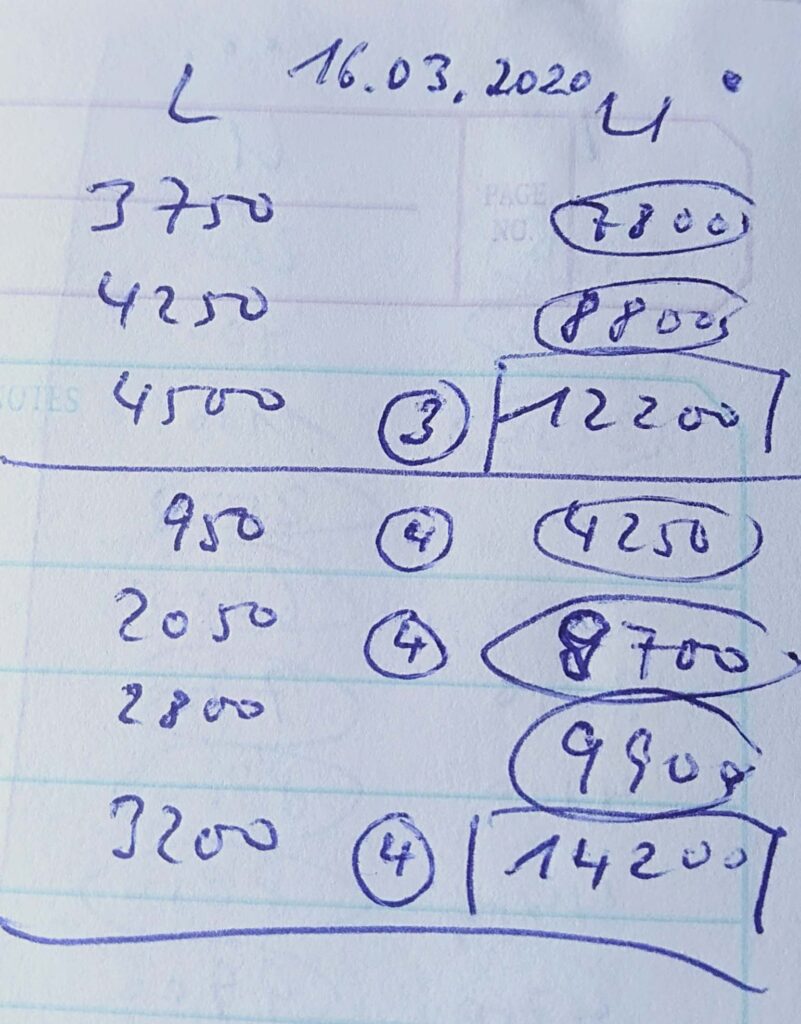 16.03.2020
L U
3750 7800
4250 8800
PAGE NO.
4500 3 12200
NOTES
950 4 4250
2050 4 8700
2800 9900
3200 4 14200